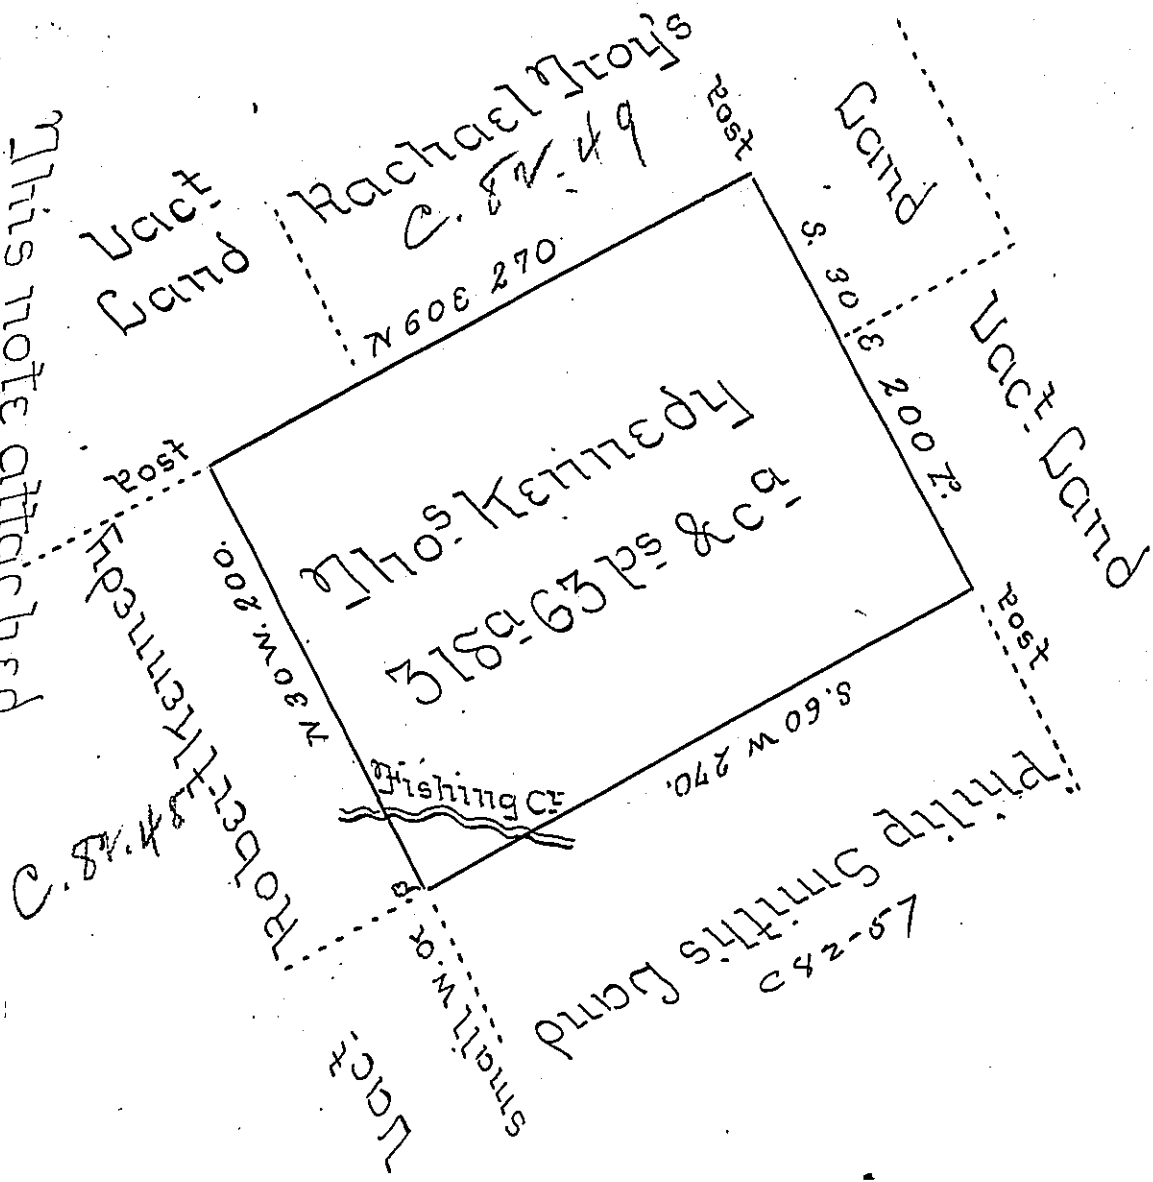 This note attached
Vact
Land
Rachael Troy's
C. 82-49
Land
post
N 60 E 270
S. 30 E 200 P.
Vact Land
post
Thos Kennedy
318a 63 ps & ca
N 30 W. 200.
Robert Kennedy
C. 82-48
Fishing Cr
post
S. 60 W 270.
Philip Smith's Land
C82-57
small w. o.
Vact